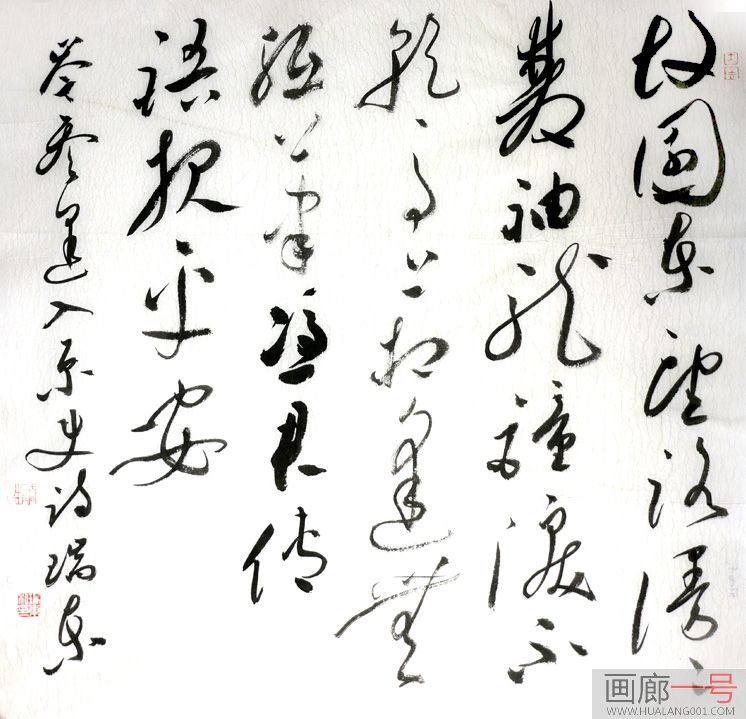 故園東望路漫〻
雙袖龍鐘淚不
乾馬上相逢無
紙筆憑君傳
語報平安
岑參逢入京使詩瑞東
画廊一号
WWW.HUALANG001.COM